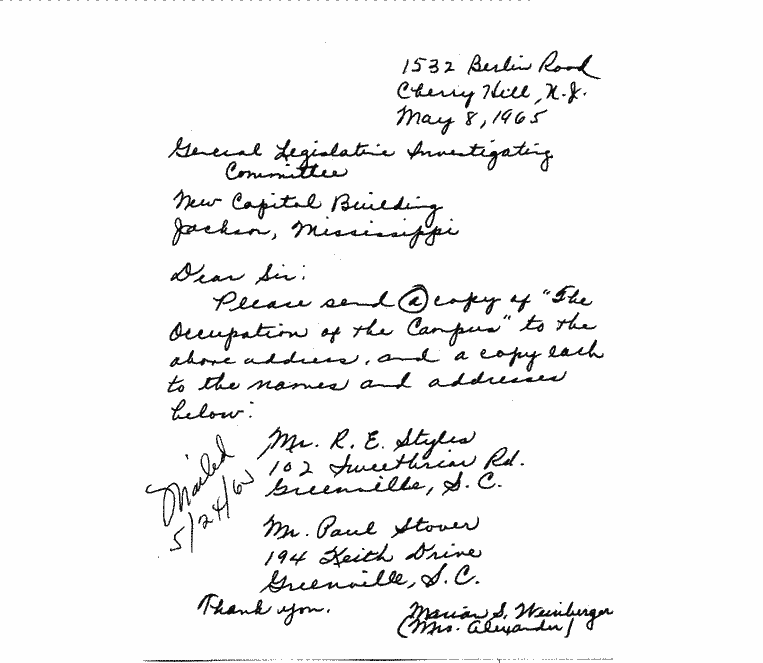 1532 Berlin Road
Cherry Hill, N.J.
May 8, 1965
General Legislative Investigating
Committee
New Capitol Building
Jackson, Mississippi
Dear Sir:
Please send a copy of "The
Occupation of the Campus" to the
above address, and a copy each
to the names and addresses
below:
Mr. R. E. Styles
102 Sweetbriar Rd.
Greenville, S.C.
Mailed
5/24/65
Mr. Paul Stover
194 Keith Drive
Greenville, S.C.
Thank you.
Marian S. Weinberger
(Mrs. Alexander)